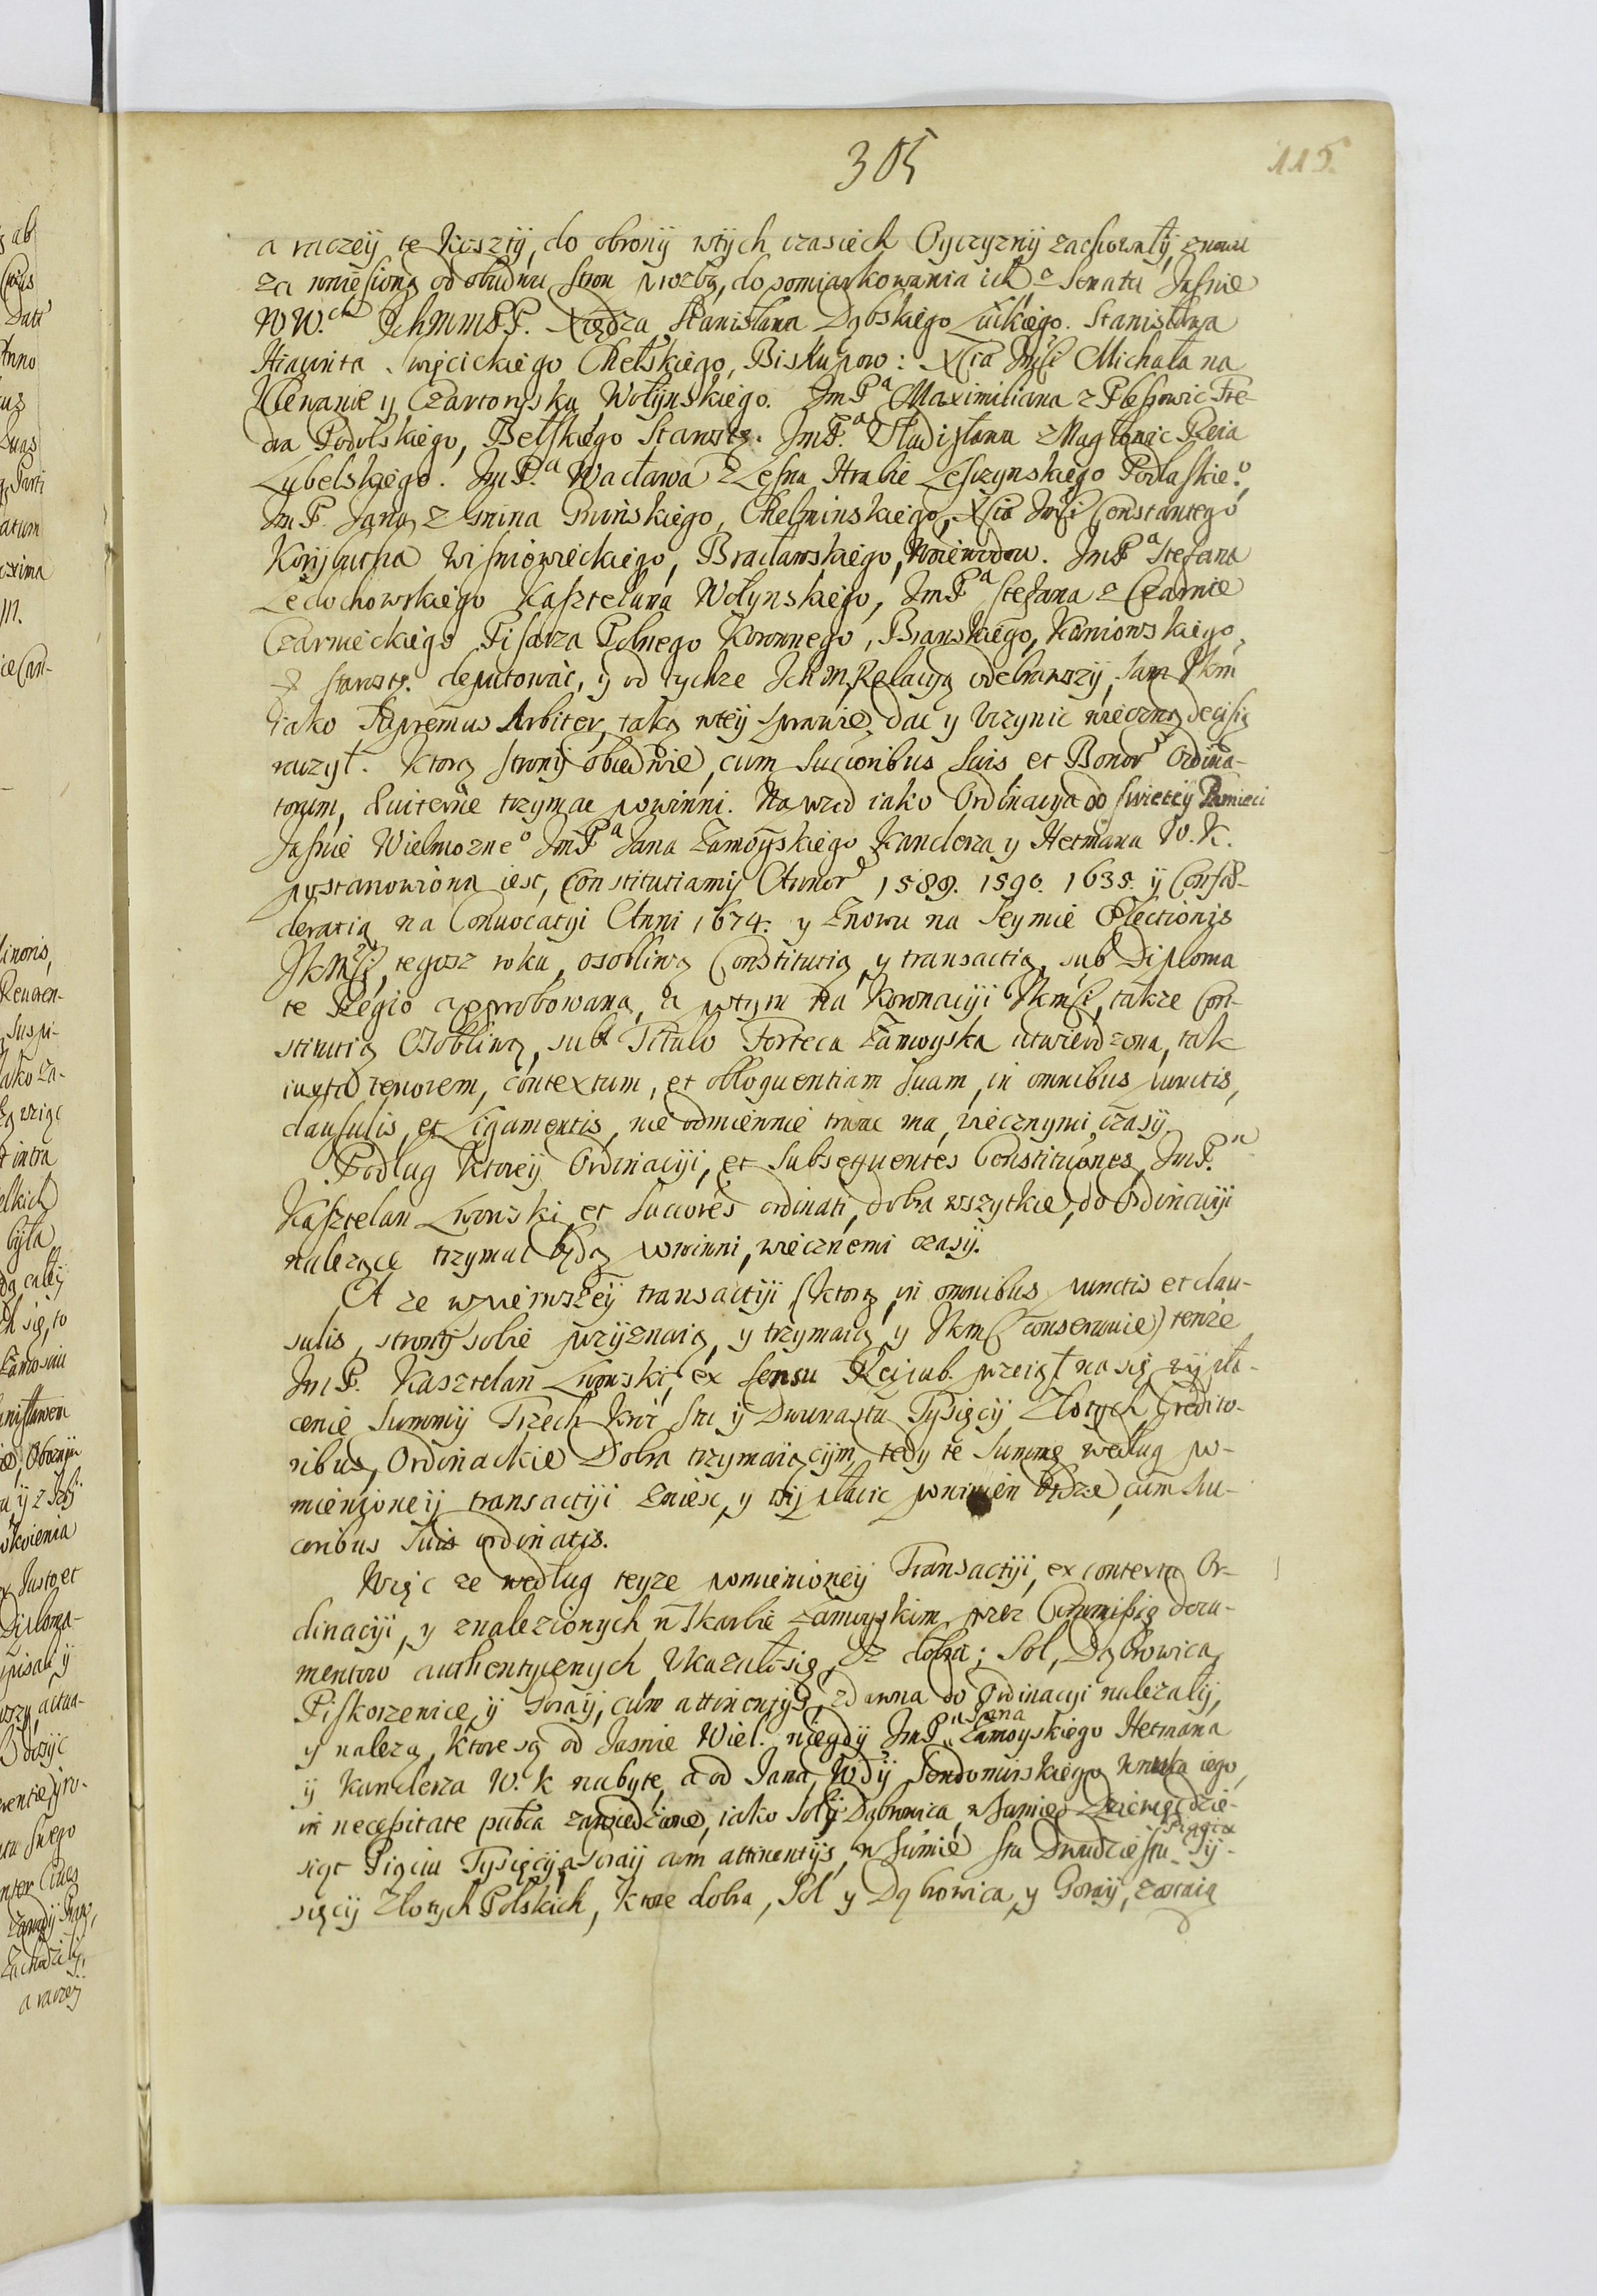 305
115.
a raczeÿ te Kosztÿ, do obronÿ wtÿch czasiech Oyczyznÿ zachowałÿ, znowu
za wniesioną od obudwu stron proźbą, do pomiarkowania ich z Senatu Jaśnie
WW.ch IchMmPP. Xiędza Stanisława Dąbskiego Łuckiego. Stanisława
Hiacynta Swięcickiego Chełskiego, Biskupow: Xcia Jmści Michała na
Klewanie y Czartorysku Wołyńskiego. JmPa Maximiliana z Pleszowic Fre-
dra Podolskiego, Bełskiego Starostę. JmP.a Władisława z Nagłowic Reia
Lubelskiego. JmP.a Wacława z Leszna Hrabie Leszczynskiego Podlaskie.o,
JmP. Jana z Gnina Gnińskiego, Chełminskiego, Xcia Jmści Constantego
Korÿbutha Wiśniowieckiego, Bracławskiego, Woiewodow. JmPa Stefana
Ledochowskiego Kasztelana Wołynskiego, JmPa Stefana z Czarnie
Czarnieckiego Pisarza Polnego Koronnego, Branskiego, Kaniowskiego,
Starostę. deputować, ÿ od tychże IchM Relacyą odebrawszÿ, sam JKm
iako Supremus Arbiter, taką wteÿ sprawie, dać y Uczynić wieczną decisią
raczył. Ktorą stronÿ obiedwie, cum Successoribus suis, et Bonor Ordina-
torum, trzymac powinni. Naprzod iako Ordinacya od świeteÿ Pamieci
Jaśnie Wielmozneo JmPa Jana Zamoÿskiego Kanclerza y Hetmana W. K.
postanowiona iest, Constitutiamÿ Annor 1589. 1590. 1635. ÿ Confæ-
deratią na Convocatÿi Anni 1674. y Znowu na Seymie Electionis
JKMści, tegosz roku, osobliwą Constitutią y transactią, sub Diploma
te Regio approbowana, a potym na Koronaciÿi JKmści, takze Con-
stitutią Osobliwą, sub Titulo Forteca Zamoyska utwierdzona, tak
iuxta tenorem, contextum, et obloquentiam suam, in omnibus punctis,
clausulis, et Ligamentis, nie odmiennie trwac ma, wiecznymi czasÿ.
Podlug Ktoreÿ Ordinaciÿi, et Subsequentes Constitutiones, JmP.n
Kasztelan Lwowski et Succores ordinati, dobra wszytkie, do Ordinaciÿi
nalezące trzymac będą powinni, wiecznemi czasÿ.
A ze wpierwszeÿ transactiÿi (Ktorą in omnibus punctis et clau-
sulis, stronÿ sobie przÿznaią, y trzymaią y JKmść conserwuie) tenże
JmP. Kasztelan Lwowski, ex sensu Reipub. przeiął na się wÿpła-
cenie Summÿ Trzech Kroć Stu ÿ Dwunastu Tysięcÿ Złotych, Credito-
ribus, Ordinackie Dobra trzymaiącÿm, tedy te Summę według po-
mienioneÿ transactiÿi znieść, y wÿpłacić powinien będzie, cum Suc-
coribus suis ordinatis.
Więc ze według teyze pomienioneÿ Transactiÿi, ex contextu Or-
dinaciÿi, y znalezionych w Skarbie Zamoyskim przez Commissią docu-
mentow authentycznych Ukazało się, Iz dobra; Sol, Dąbrowica,
Piskorzenice, ÿ Goraÿ, cum attinentÿs, zdawna do Ordinacyi nalezałÿ,
y należą, Ktore są od Jasnie Wiel. niegdÿ JmPa Jana Zamoyskiego Hetmana
ÿ Kanclerza W. K nabyte, a od Jana, Wdÿ Sendomirskiego Wnuka iego,
in necessitate publca zawiedzione, iako Sol ÿ Dąbrowica, w Sumie Dziewięcdzie-
siąt Pięciu Tysięcÿ, a Goraÿ cum attinentÿs, w Sumie Stu Dwudziestu Pięciu Tÿ-
sięcÿ Złotych Polskich, Ktore dobra, Sol y Dąbrowica, y Goraÿ, zaraią